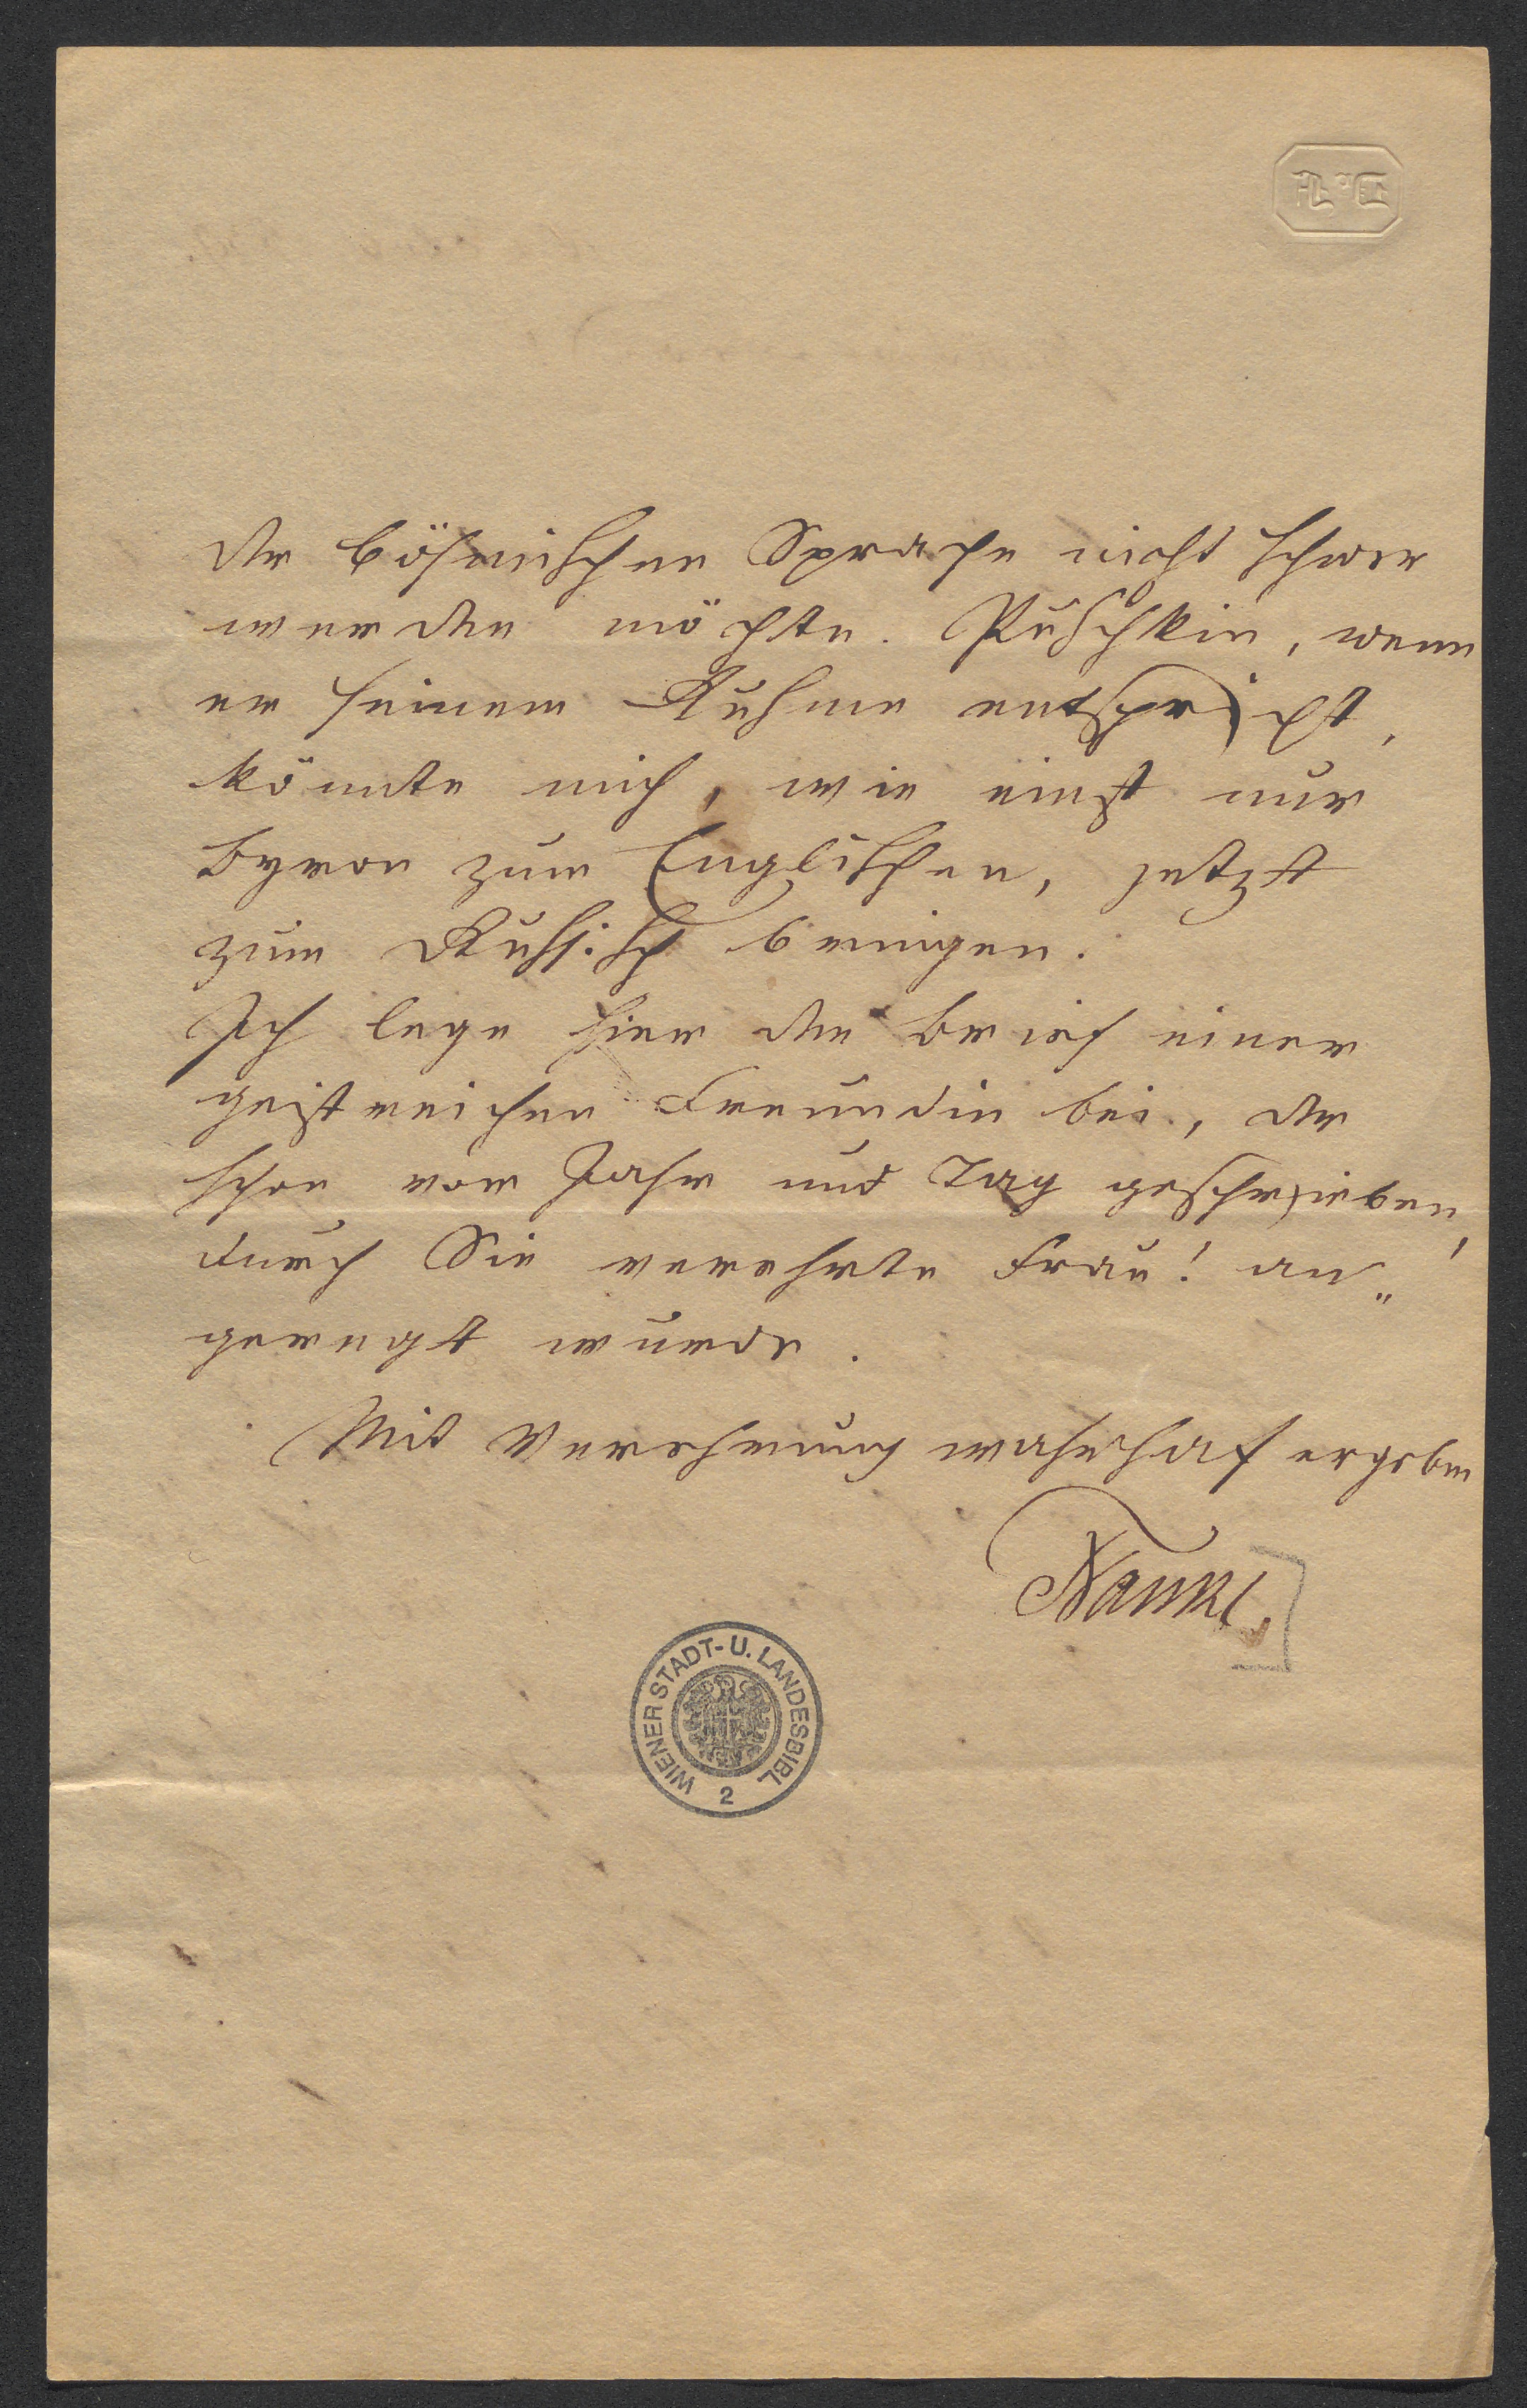 der böhmischen Sprache nicht schwer
werden möchte. Puschkin, wenn
er seinem Ruhme entspricht,
könnte mich, wie einst nur
Byron zum Englischen, jetzt
zum Russisch bringen.
Ich lege hier den Brief einer
geistreichen Freundin bei, der
schon vor Jahr und Tag geschrieben,
durch Sie verehrte Frau! an„
geregt wurde.
Mit Verehrung wahrhaft ergeben
Frankl.
WIENER STADT- U. LANDESBIBL.
2